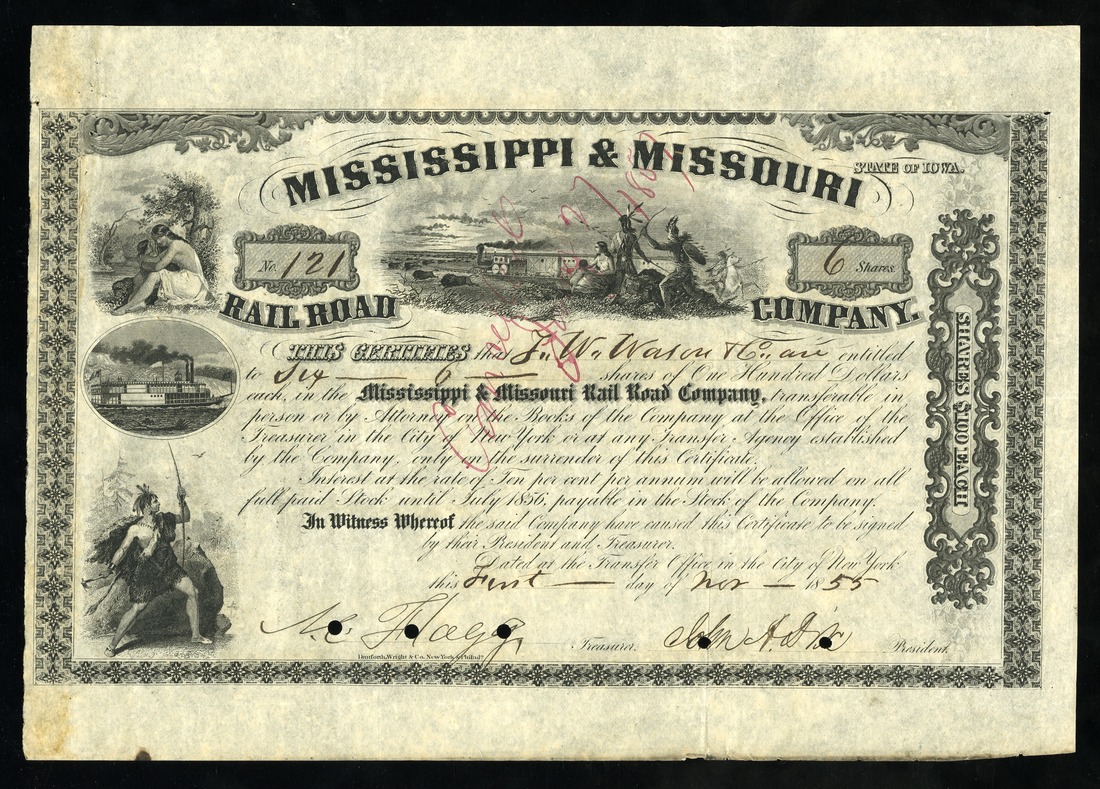 MISSISSIPPI & MISSOURI
STATE OF IOWA.
No. 121
6 Shares
RAIL ROAD COMPANY.
THIS CERTIFIES that J. W. Watson & Co. are entitled
to Six — 6 — shares of One Hundred Dollars
each, in the Mississippi & Missouri Rail Road Company, transferable in
person or by Attorney on the Books of the Company at the Office of the
Treasurer in the City of New York or at any Transfer Agency established
by the Company, only on the surrender of this Certificate.
Interest at the rate of Ten per cent per annum will be allowed on all
full paid Stock until July 1856, payable in the Stock of the Company.
In Witness Whereof the said Company have caused this Certificate to be signed
by their President and Treasurer.
Dated at the Transfer Office in the City of New York
this First — day of Nov — 1855
Treasurer. John A. Dix President.
Danforth, Wright & Co. New York & Philad.
SHARES $100 EACH
Cancelled